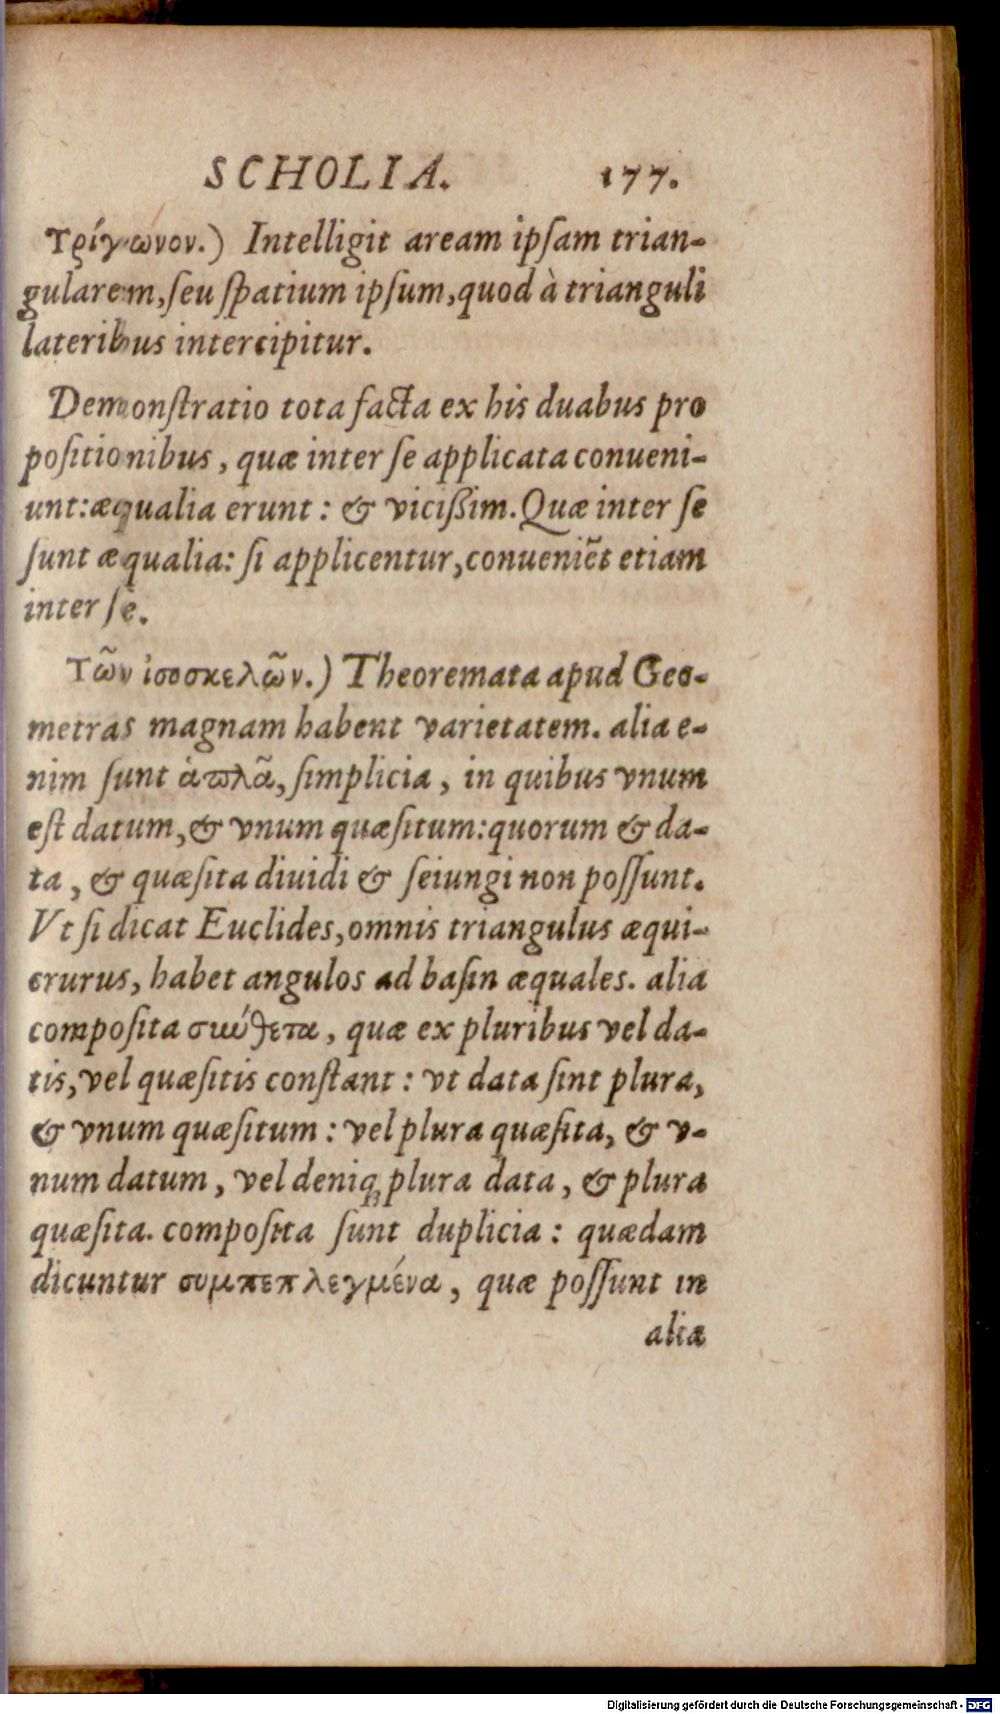 SCHOLIA. 177.
Τρίγωνον.) Intelligit aream ipſam trian-
gularem, ſeu ſpatium ipſum, quod à trianguli
lateribus intercipitur.
Demonſtratio tota facta ex his duabus pro
poſitionibus, quæ inter ſe applicata conueni-
unt: æqualia erunt: & viciſsim. Quæ inter ſe
ſunt æqualia: ſi applicentur, conueniēt etiam
inter ſe.
Τῶν ἰσοσκελῶν.) Theoremata apud Geo-
metras magnam habent varietatem. alia e-
nim ſunt ἁπλᾶ, ſimplicia, in quibus vnum
eſt datum, & vnum quæſitum: quorum & da-
ta, & quæſita diuidi & ſeiungi non poſſunt.
Vt ſi dicat Euclides, omnis triangulus æqui-
crurus, habet angulos ad baſin æquales. alia
compoſita σιώθετα, quæ ex pluribus vel da-
tis, vel quæſitis conſtant: vt data ſint plura,
& vnum quæſitum: vel plura quæſita, & v-
num datum, vel deniq; plura data, & plura
quæſita. compoſita ſunt duplicia: quædam
dicuntur συμπεπλεγμένα, quæ poſſunt in
alia
Digitalisierung gefördert durch die Deutsche Forschungsgemeinschaft - DFG